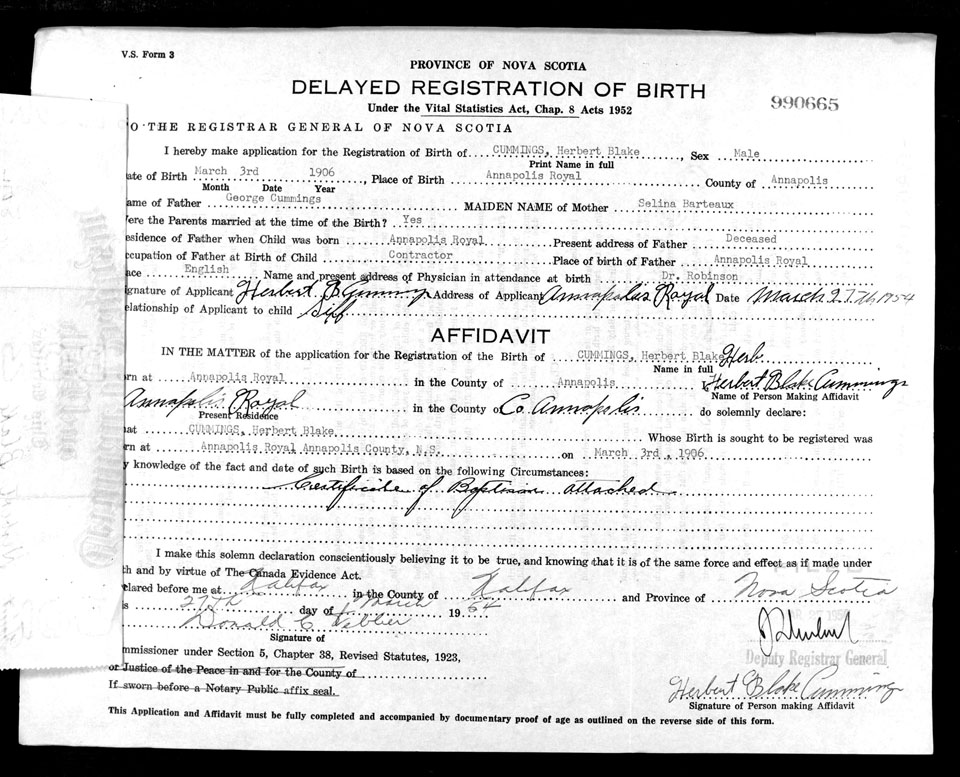 V.S. Form 3
PROVINCE OF NOVA SCOTIA
DELAYED REGISTRATION OF BIRTH
990665
Under the Vital Statistics Act, Chap. 8 Acts 1952
O THE REGISTRAR GENERAL OF NOVA SCOTIA
I hereby make application for the Registration of Birth of CUMMINGS, Herbert Blake, Sex Male
Print Name in full
ate of Birth March 3rd 1906, Place of Birth Annapolis Royal County of Annapolis
Month Date Year
ame of Father George Cummings MAIDEN NAME of Mother Selina Barteaux
ere the Parents married at the time of the Birth? Yes
esidence of Father when Child was born Annapolis Royal Present address of Father Deceased
ccupation of Father at Birth of Child Contractor Place of birth of Father Annapolis Royal
ace English Name and present address of Physician in attendance at birth Dr. Robinson
ignature of Applicant Herbert B Cummings Address of Applicant Annapolis Royal Date March 27th 1954
elationship of Applicant to child Self
AFFIDAVIT
IN THE MATTER of the application for the Registration of the Birth of CUMMINGS, Herbert Blake Herb
Name in full
rn at Annapolis Royal in the County of Annapolis Herbert Blake Cummings
Name of Person Making Affidavit
Annapolis Royal in the County of Co. Annapolis do solemnly declare:
Present Residence
at CUMMINGS, Herbert Blake Whose Birth is sought to be registered was
rn at Annapolis Royal Annapolis County, N.S. on March 3rd, 1906
y knowledge of the fact and date of such Birth is based on the following Circumstances:
Certificate of Baptism attached
I make this solemn declaration conscientiously believing it to be true, and knowing that it is of the same force and effect as if made under
h and by virtue of The Canada Evidence Act.
clared before me at Halifax in the County of Halifax and Province of Nova Scotia
s 27th day of March 1954
Donald C
Signature of
Deputy Registrar General
mmissioner under Section 5, Chapter 38, Revised Statutes, 1923,
or Justice of the Peace in and for the County of
If sworn before a Notary Public affix seal.
Herbert Blake Cummings
Signature of Person making Affidavit
This Application and Affidavit must be fully completed and accompanied by documentary proof of age as outlined on the reverse side of this form.